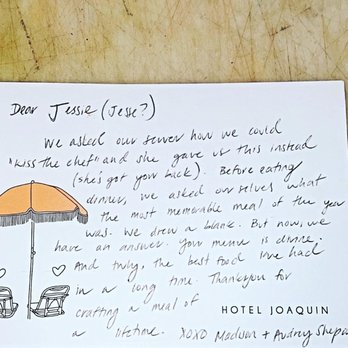 Dear Jessie (Jesse?)
We asked our server how we could
"kiss the chef" and she gave us this instead
(she's got your back). Before eating
dinner, we asked ourselves what
the most memorable meal of the year
was. We drew a blank. But now, we
have an answer. Your menu is divine.
And truly, the best food I've had
in a long time. Thank you for
crafting a meal of
a lifetime. XOXO Madison + Audrey
HOTEL JOAQUIN